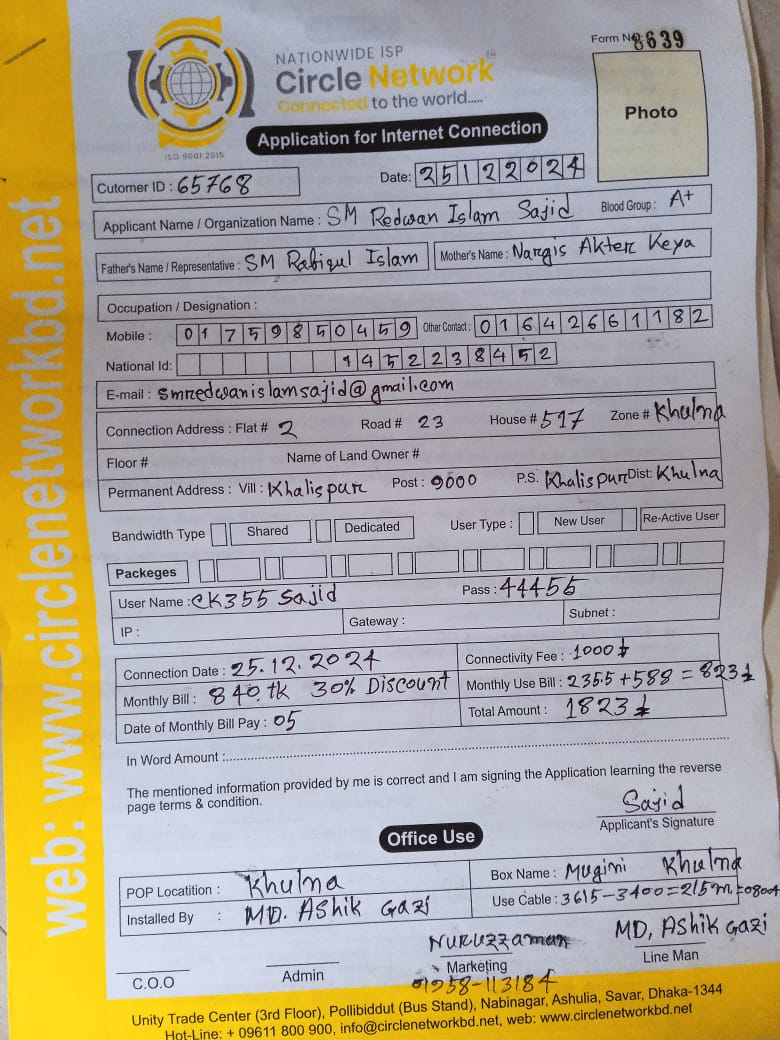 NATIONWIDE ISP
Circle Network
Connected to the world.....
ISO 9001:2015
Form No 8639
Photo
Application for Internet Connection
Cutomer ID : 65768
Date: 25122024
Applicant Name / Organization Name : SM Redwan Islam Sajid Blood Group : A+
Father's Name / Representative : SM Rafiqul Islam Mother's Name : Nargis Akter Keya
Occupation / Designation :
Mobile : 01759850459 Other Contact : 01642661182
National Id: 1452238452
E-mail : smredwanislamsajid@gmail.com
Connection Address : Flat # 2 Road # 23 House # 517 Zone # Khulna
Floor # Name of Land Owner #
Permanent Address : Vill : Khalispur Post : 9000 P.S. Khalispur Dist: Khulna
Bandwidth Type Shared Dedicated User Type : New User Re-Active User
Packeges
User Name : CK355 Sajid Pass : 44455
IP : Gateway : Subnet :
Connection Date : 25.12.2024 Connectivity Fee : 1000৳
Monthly Bill : 840.tk 30% Discount Monthly Use Bill : 235.5+588 = 823৳
Date of Monthly Bill Pay : 05 Total Amount : 1823৳
In Word Amount :..........
The mentioned information provided by me is correct and I am signing the Application learning the reverse
page terms & condition.
Sajid
Applicant's Signature
Office Use
POP Locatition : Khulna Box Name : Mugini Khulna
Installed By : MD. Ashik Gazi Use Cable : 3615-3400=215m
Nuruzzaman MD, Ashik Gazi
C.O.O Admin Marketing Line Man
01958-113184
Unity Trade Center (3rd Floor), Pollibiddut (Bus Stand), Nabinagar, Ashulia, Savar, Dhaka-1344
Hot-Line: + 09611 800 900, info@circlenetworkbd.net, web: www.circlenetworkbd.net
web: www.circlenetworkbd.net